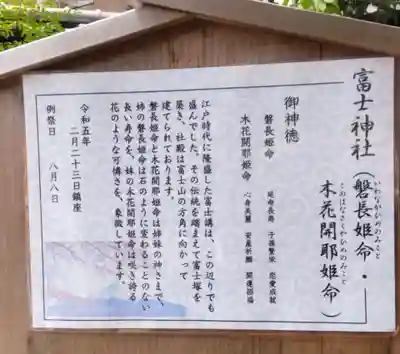 富士神社（磐長姫命・
いわながひめのみこと
木花開耶姫命）
このはなさくやひめのみこと
御神徳
磐長姫命　延命長寿　子孫繁栄　恋愛成就
木花開耶姫命　心身美麗　安産祈願　開運招福
江戸時代に隆盛した富士講は、この辺りでも
盛んでした。その伝統を踏まえて富士塚を
築き、社殿は富士山の方角に向かって
建てられております。
磐長姫命と木花開耶姫命は姉妹の神さまで、
姉の磐長姫命は石のように変わることのない
長い寿命を、妹の木花開耶姫命は咲き誇る
花のような可憐さを、象徴しています。
令和五年
二月二十三日鎮座
例祭日　八月八日